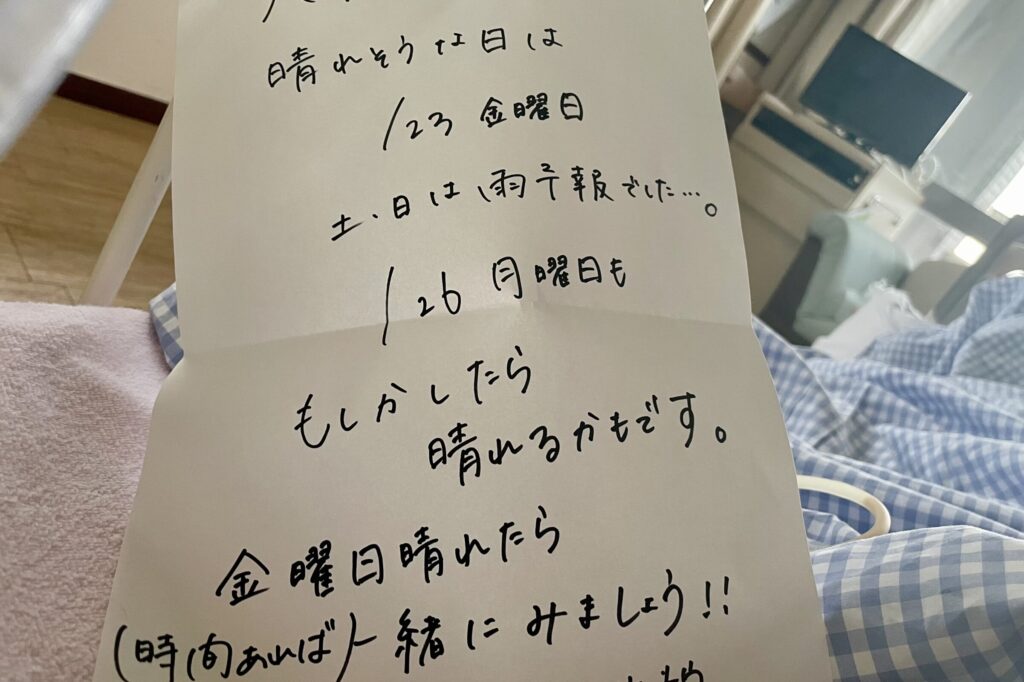 晴れそうな日は
/23 金曜日
土、日は雨予報でした…。
/26 月曜日も
もしかしたら
晴れるかもです。
金曜日晴れたら
(時間あれば)一緒にみましょう!!